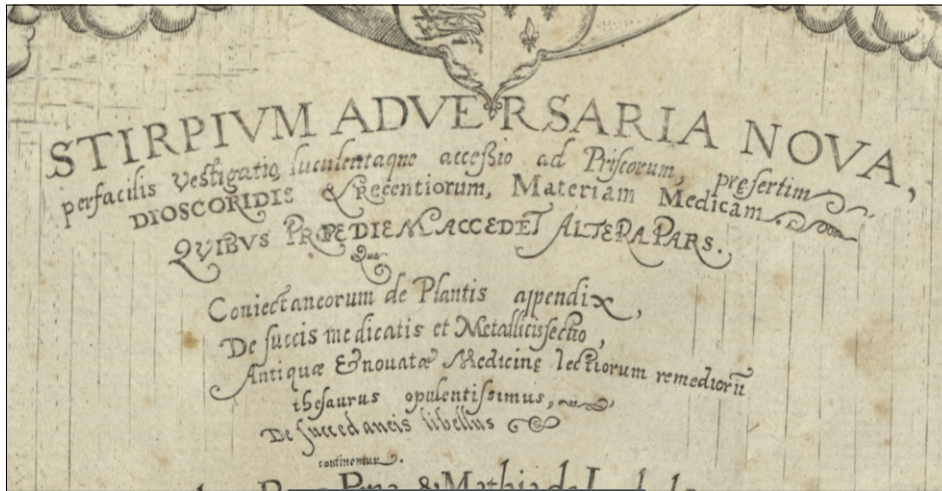 STIRPIVM ADVERSARIA NOVA,
perfacilis Vestigatio, luculentaque acceßio ad Priscorum, presertim
DIOSCORIDIS & Recentiorum, Materiam Medicam
QVIBVS PROPEDIEM ACCEDET ALTERA PARS.
Qua
Coniectaneorum de Plantis appendix,
De succis medicatis et Metallicis sectio,
Antiquæ & nouatæ Medicine lectiorum remediorū
thesaurus opulentissimus,
De succedaneis libellus
continentur.
Pena & Mathia de